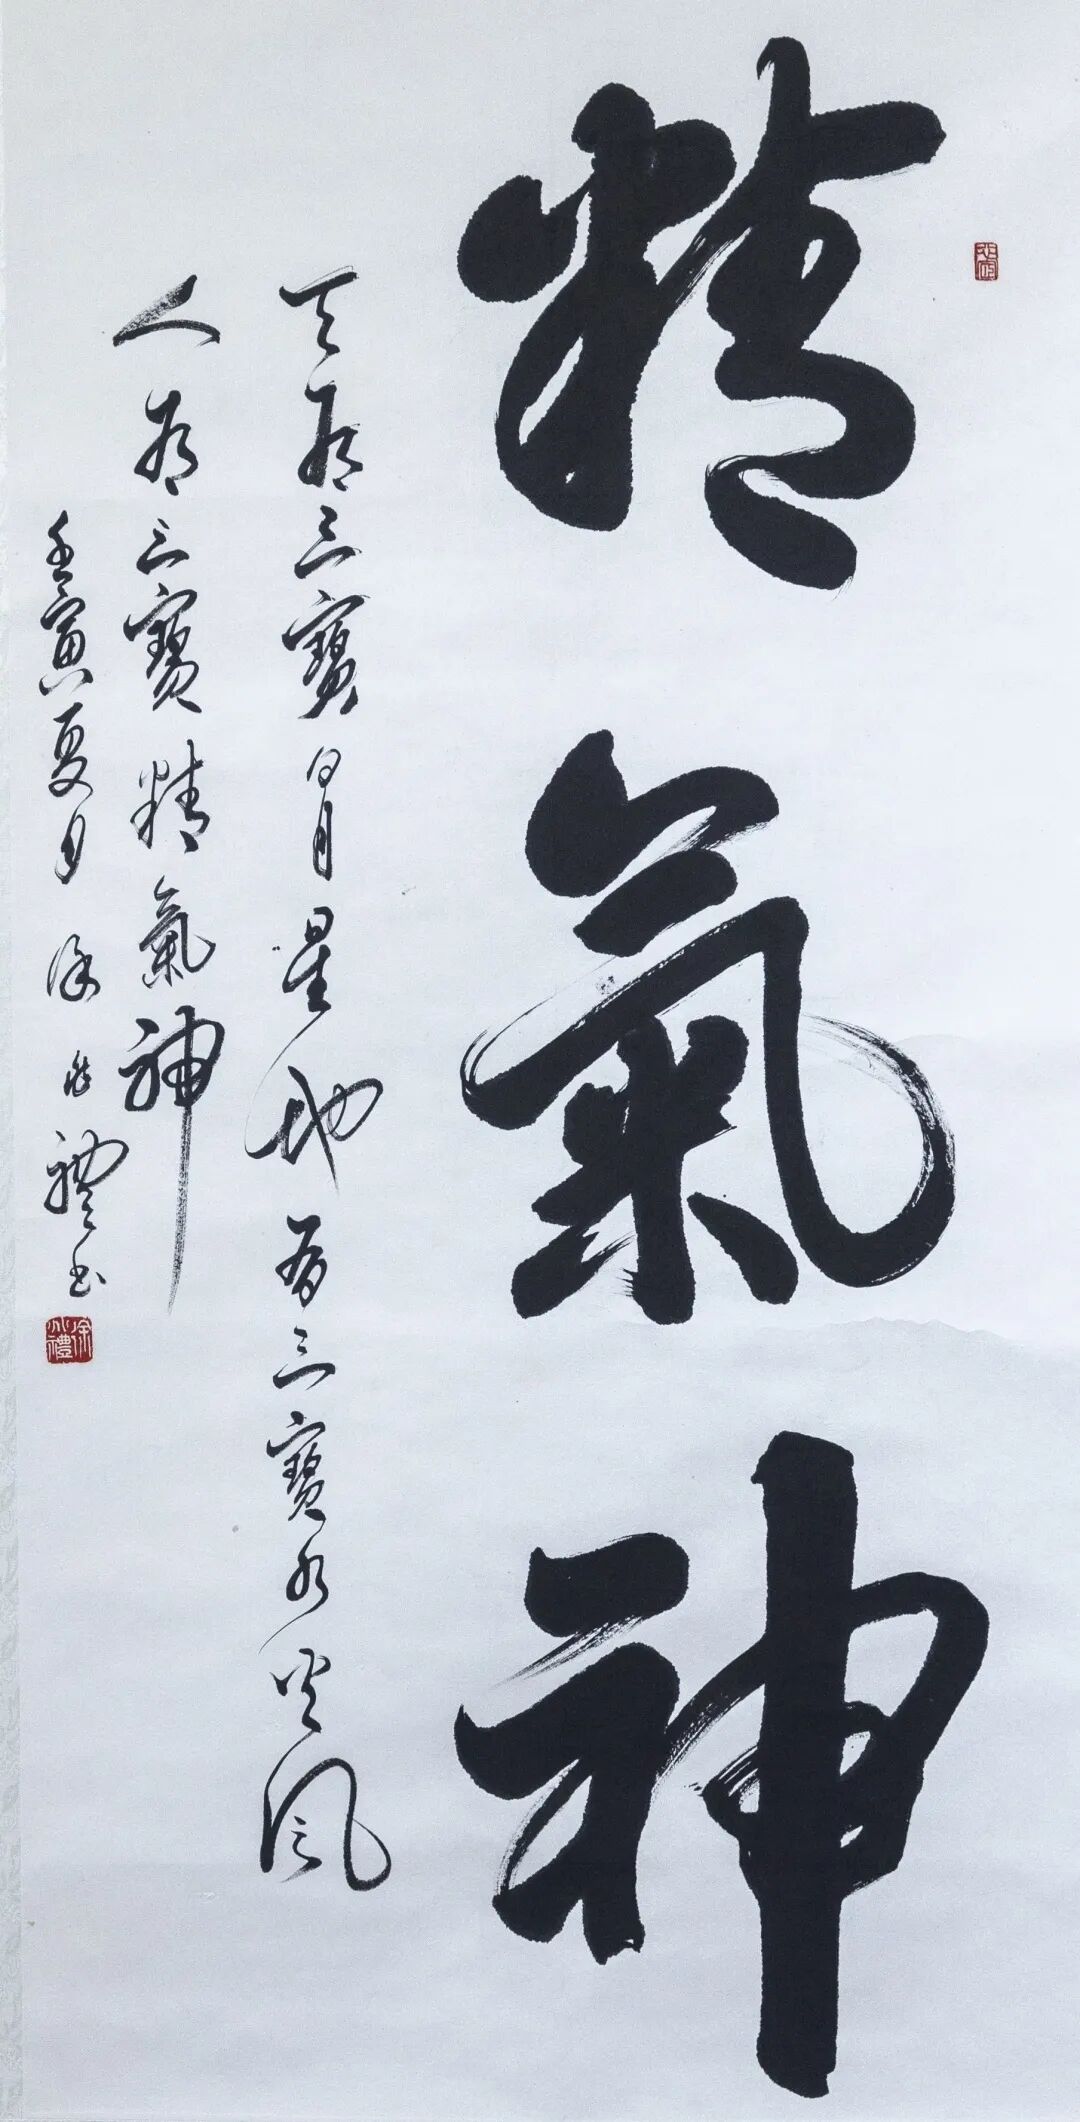 精氣神
天有三寶日月星地有三寶水火風
人有三寶精氣神
壬寅夏月徐兆禮書